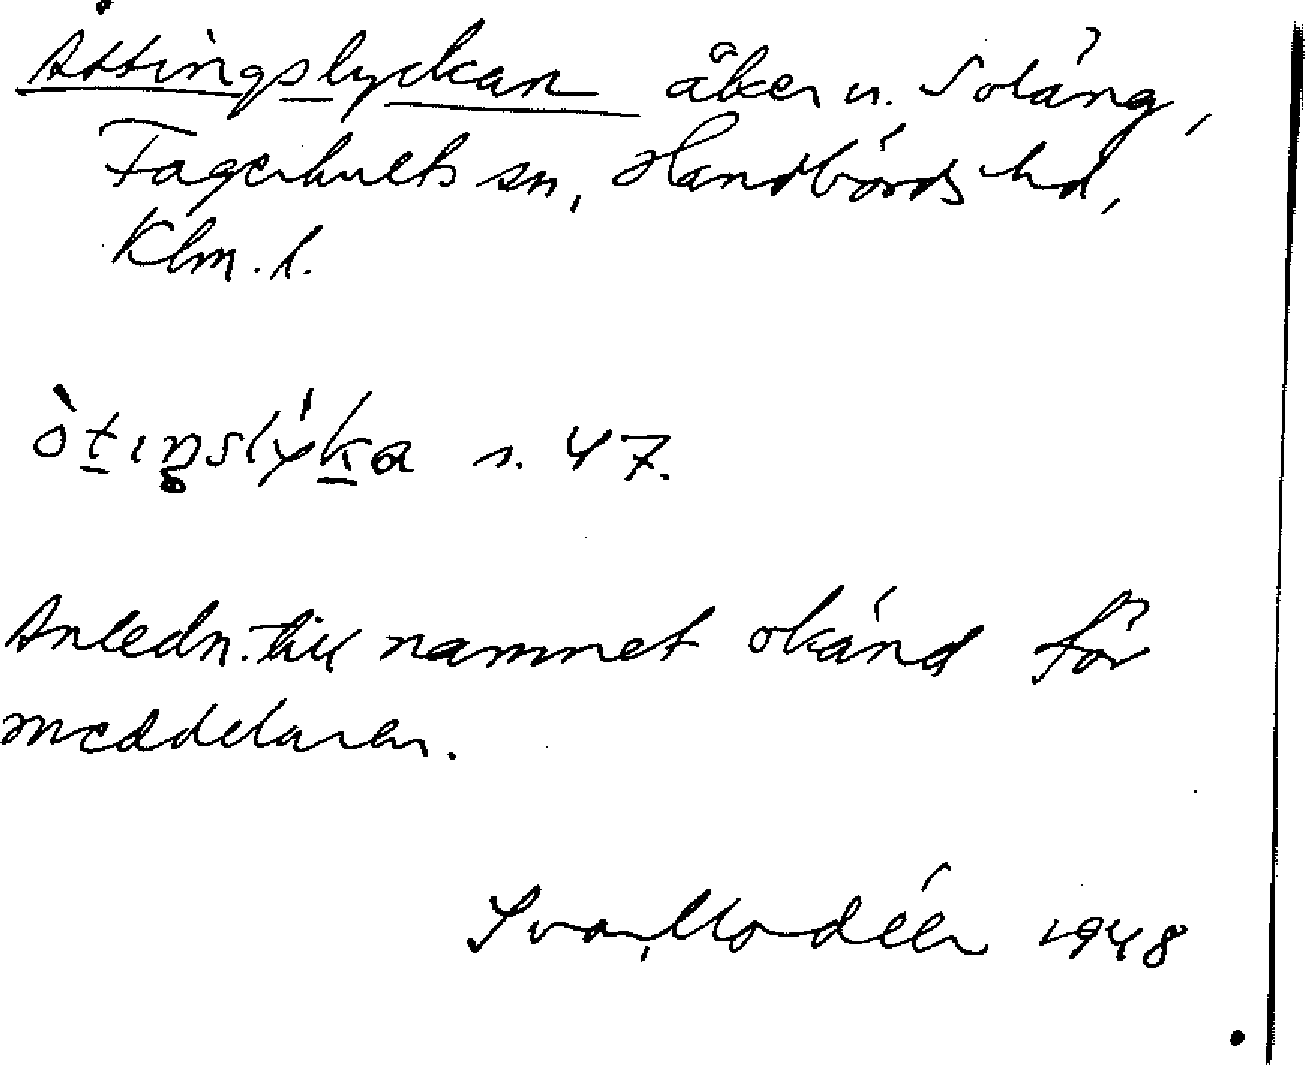 Åttingslyckan åker u. Soläng,
Fagerhults sn, Handbörds hd,
Klm. l.
s. 47.
Anledn. till namnet okänd för
meddelaren.
Ivar Modéer 1948